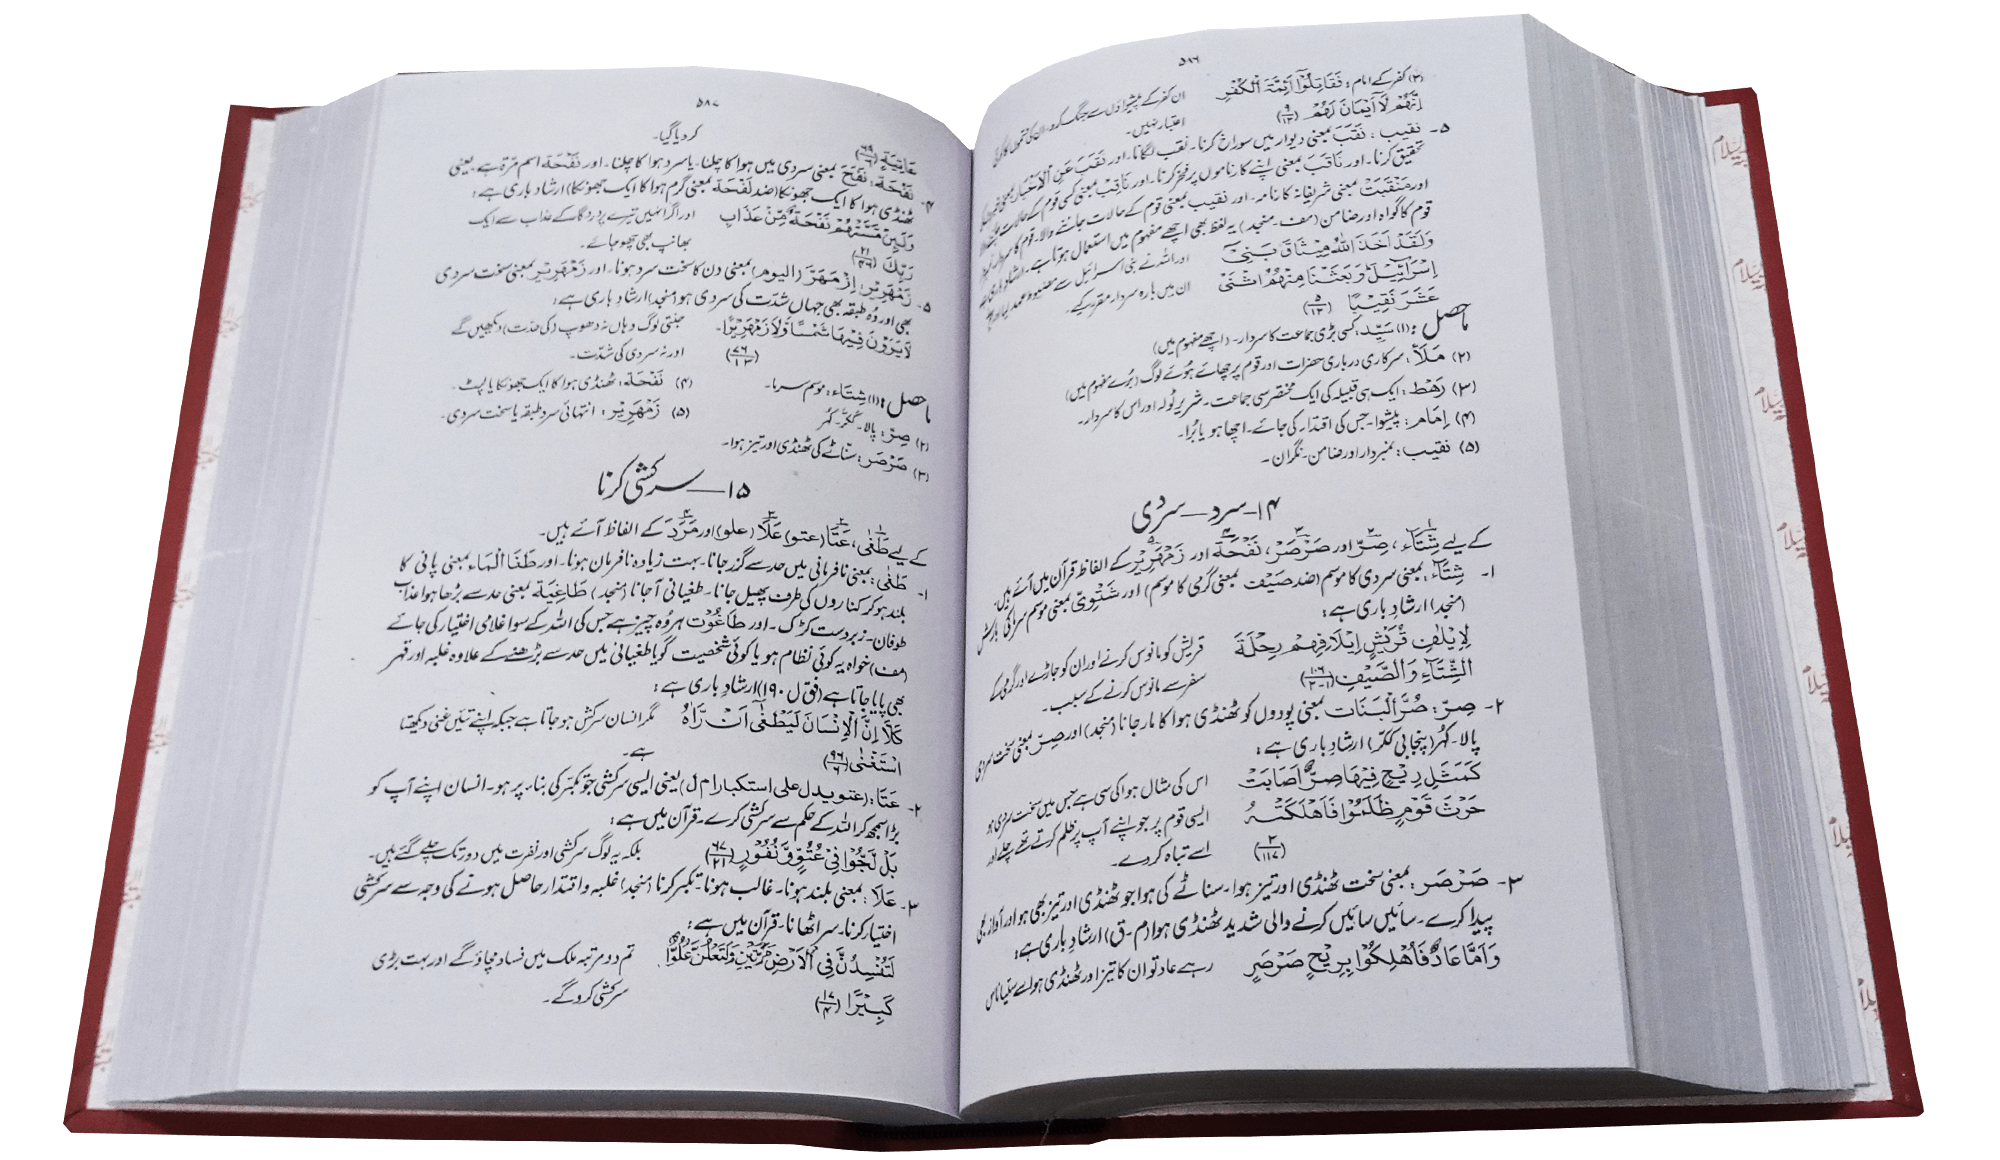 ۵۸۶
(۴) کفر کے امام : فَقَاتِلُوْٓا اَئِمَّةَ الْكُفْرِ ان کفر کے پیشواؤں سے جنگ کرو، ان کی قسموں کا کوئی
اِنَّهُمْ لَآ اَيْمَانَ لَهُمْ (۹/۱۲) اعتبار نہیں۔
۵۔ نقیب : نَقَبَ بمعنی دیوار میں سوراخ کرنا۔ نقب لگانا۔ اور نَقَبَ عَنِ الْاَخْبَار بمعنی خبر کی
تحقیق کرنا۔ اور نَاقَبَ بمعنی اپنے کارناموں پر فخر کرنا۔ اور نَاقِبْ بمعنی کسی قوم کے حالات
اور مَنْقَبَتْ بمعنی شریفانہ کارنامہ۔ اور نقیب بمعنی قوم کے حالات جاننے والا۔ قوم کا سردار
قوم کا گواہ اور ضامن (مف۔ منجد) یہ لفظ بھی اچھے مفہوم میں استعمال ہوتا ہے۔ ارشاد باری
وَلَقَدْ اَخَذَ اللّٰهُ مِيْثَاقَ بَنِيْٓ اور اللہ نے بنی اسرائیل سے مضبوط عہد لیا اور
اِسْرَآئِيْلَ وَبَعَثْنَا مِنْهُمُ اثْنَىْ ان میں بارہ سردار مقرر کیے۔
عَشَرَ نَقِيْبًا (۵/۱۲)
ماحصل : (۱) سَیِّد، کسی بڑی جماعت کا سردار۔ (اچھے مفہوم میں)
(۲) مَلَأ : سرکاری درباری حضرات اور قوم پر چھائے ہوئے لوگ (بُرے مفہوم میں)
(۳) رَهْط : ایک ہی قبیلہ کی ایک مختصر سی جماعت۔ شریر ٹولہ اور اس کا سردار۔
(۴) اِمَام : پیشوا۔ جس کی اقتداء کی جائے۔ اچھا ہو یا بُرا۔
(۵) نقیب : نمبردار اور ضامن۔ نگران۔
۱۴۔ سرد — سردی
کے لیے شِتَآء، صِرّ اور صَرْصَر، نَفْحَة اور زَمْهَرِيْر کے الفاظ قرآن میں آئے ہیں۔
۱۔ شِتَآء : بمعنی سردی کا موسم (ضد صَیْف بمعنی گرمی کا موسم) اور شَتْوِیّ بمعنی موسم سرما کی بارش
(منجد) ارشاد باری ہے :
لِاِيْلٰفِ قُرَيْشٍ اٖلٰفِهِمْ رِحْلَةَ قریش کو مانوس کرنے اور ان کو جاڑے اور گرمی کے
الشِّتَآءِ وَالصَّيْفِ (۱۰۶/۱-۲) سفر سے مانوس کرنے کے سبب۔
۲۔ صِرّ : صُرَّ النَّبَات بمعنی پودوں کو ٹھنڈی ہوا کا مار جانا (منجد) اور صِرّ بمعنی سخت سردی
پالا۔ کہر (پنجابی ککر) ارشاد باری ہے :
كَمَثَلِ رِيْحٍ فِيْهَا صِرٌّ اَصَابَتْ اس کی مثال ہوا کی سی ہے جس میں سخت سردی ہو
حَرْثَ قَوْمٍ ظَلَمُوْٓا فَاَهْلَكَتْهُ ایسی قوم پر جو اپنے آپ پر ظلم کرتے تھے چلے اور
(۳/۱۱۷) اسے تباہ کر دے۔
۳۔ صَرْصَر : بمعنی سخت ٹھنڈی اور تیز ہوا۔ سناٹے کی ہوا جو ٹھنڈی اور تیز بھی ہو اور آواز بھی
پیدا کرے۔ سائیں سائیں کرنے والی شدید ٹھنڈی ہوا (م۔ق) ارشاد باری ہے :
وَاَمَّا عَادٌ فَاُهْلِكُوْا بِرِيْحٍ صَرْصَرٍ رہے عاد تو ان کا تیز اور ٹھنڈی ہوا سے ستیاناس
۵۸۷
عَاتِيَةٍ (۶۹/۶) کر دیا گیا۔
۴۔ نَفْحَة : نَفَحَ بمعنی سردی میں ہوا کا چلنا۔ یا سرد ہوا کا چلنا۔ اور نَفْحَة اسم مرّۃ ہے یعنی
ٹھنڈی ہوا کا ایک جھونکا (ضد لَفْحَة بمعنی گرم ہوا کا ایک جھونکا) ارشاد باری ہے :
وَلَئِنْ مَّسَّتْهُمْ نَفْحَةٌ مِّنْ عَذَابِ اور اگر انہیں تیرے پروردگار کے عذاب سے ایک
رَبِّكَ (۲۱/۴۶) بھانپ بھی چھو جائے۔
۵۔ زَمْهَرِيْر : اِزْمَهَرَّ (الیوم) بمعنی دن کا سخت سرد ہونا۔ اور زَمْهَرِيْر بمعنی سخت سردی
بھی اور وُہ طبقہ بھی جہاں شدّت کی سردی ہو (منجد) ارشاد باری ہے :
لَا يَرَوْنَ فِيْهَا شَمْسًا وَّلَا زَمْهَرِيْرًا۔ جنتی لوگ وہاں نہ دھوپ (کی حدّت) دیکھیں گے
(۷۶/۱۳) اور نہ سردی کی شدّت۔
ماحصل : (۱) شِتَاء : موسم سرما۔ (۴) نَفْحَة : ٹھنڈی ہوا کا ایک جھونکا یا لپٹ۔
(۲) صِرّ : پالا۔ ککّر۔ کہُر (۵) زَمْهَرِيْر : انتہائی سرد طبقہ یا سخت سردی۔
(۳) صَرْصَر : سناٹے کی ٹھنڈی اور تیز ہوا۔
۱۵ — سرکشی کرنا
کے لیے طَغٰی، عَتَا (عتو) عَلَا (علو) اور مَرَدَ کے الفاظ آئے ہیں۔
۱۔ طَغٰی : بمعنی نافرمانی میں حد سے گزر جانا۔ بہت زیادہ نافرمان ہونا۔ اور طَغَا الْمَاء بمعنی پانی کا
بلند ہو کر کناروں کی طرف پھیل جانا۔ طغیانی آجانا (منجد) طَاغِيَة بمعنی حد سے بڑھا ہوا عذاب
طوفان۔ زبردست کڑک۔ اور طَاغُوْت ہر وُہ چیز ہے جس کی اللہ کے سوا غلامی اختیار کی جائے
(مف) خواہ یہ کوئی نظام ہو یا کوئی شخصیت گویا طغیانی میں حد سے بڑھنے کے علاوہ غلبہ اور قہر
بھی پایا جاتا ہے (فق ل ۱۹۰) ارشاد باری ہے :
كَلَّآ اِنَّ الْاِنْسَانَ لَيَطْغٰٓى اَنْ رَّاٰهُ مگر انسان سرکش ہو جاتا ہے جبکہ اپنے تئیں غنی دیکھتا
اسْتَغْنٰى (۹۶/۶) ہے۔
۲۔ عَتَا : (عتو یدل علی استکبار م ل) یعنی ایسی سرکشی جو تکبّر کی بناء پر ہو۔ انسان اپنے آپ کو
بڑا سمجھ کر اللہ کے حکم سے سرکشی کرے۔ قرآن میں ہے :
بَلْ لَّجُّوْا فِيْ عُتُوٍّ وَّنُفُوْرٍ (۶۷/۲۱) بلکہ یہ لوگ سرکشی اور نفرت میں دور تک چلے گئے ہیں۔
۳۔ عَلَا : بمعنی بلند ہونا۔ غالب ہونا۔ تکبّر کرنا (منجد) غلبہ و اقتدار حاصل ہونے کی وجہ سے سرکشی
اختیار کرنا۔ سر اٹھانا۔ قرآن میں ہے :
لَتُفْسِدُنَّ فِي الْاَرْضِ مَرَّتَيْنِ وَلَتَعْلُنَّ عُلُوًّا تم دو مرتبہ ملک میں فساد مچاؤ گے اور بہت بڑی
كَبِيْرًا (۱۷/۴) سرکشی کرو گے۔